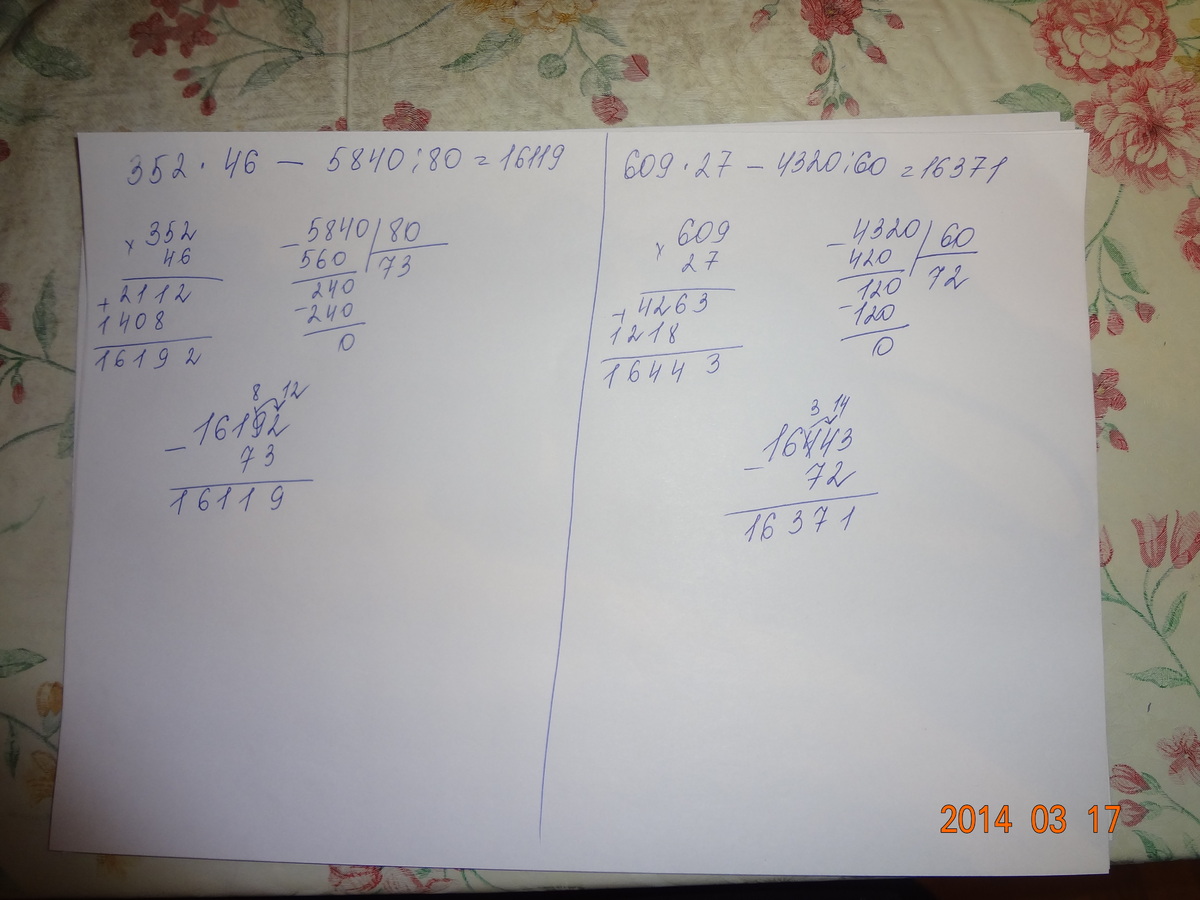 352 · 46 — 5840 : 80 = 16119
× 352
46
+ 2112
1408
16192
− 5840 | 80
560 73
240
− 240
0
8 12
− 16192
73
16119
609 · 27 − 4320 : 60 = 16371
× 609
27
+ 4263
1218
16443
− 4320 | 60
420 72
120
− 120
0
3 14
− 16443
72
16371
2014 03 17